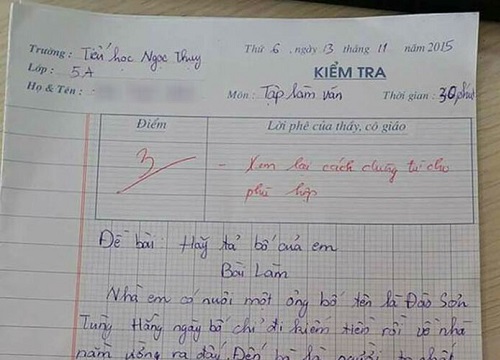 Trường : Tiểu học Ngọc Thụy
Thứ 6 , ngày 13 tháng 11 năm 2015
Lớp : 5A
KIỂM TRA
Họ & Tên :
Môn : Tập làm văn
Thời gian : 30 phút
Điểm
Lời phê của thầy, cô giáo
3
- Xem lại cách dùng từ cho
phù hợp
Đề bài : Hãy tả bố của em
Bài Làm
Nhà em có nuôi một ông bố tên là Đào Sơn
Tùng Hằng ngày bố chỉ đi kiếm tiền rồi về nhà
nằm uỗng ra đấy. Đến bà là người